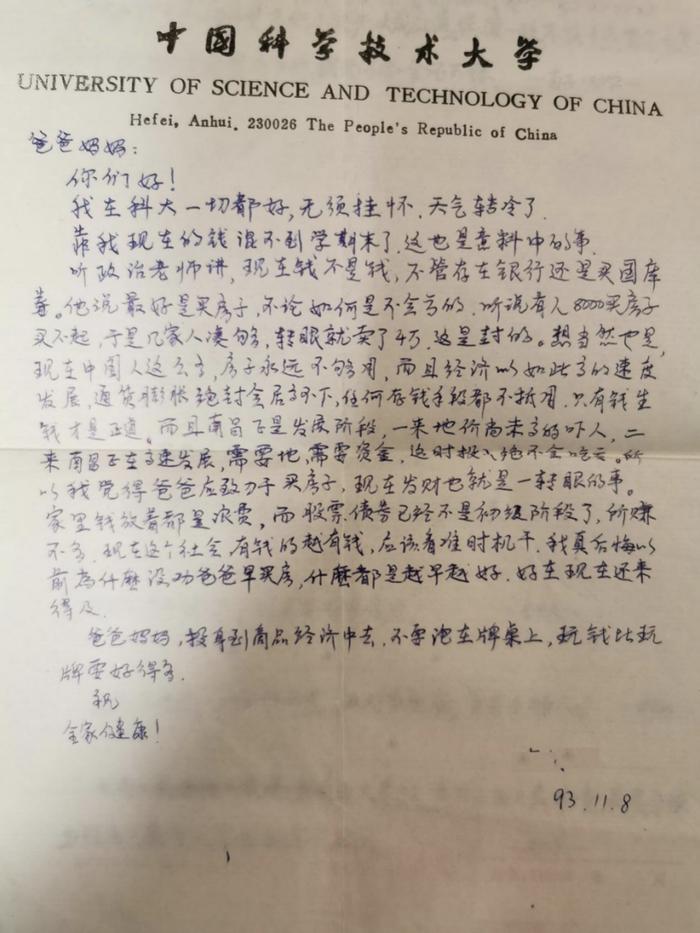 中国科学技术大学
UNIVERSITY OF SCIENCE AND TECHNOLOGY OF CHINA
Hefei, Anhui. 230026 The People's Republic of China
爸爸妈妈：
你们好！
我在科大一切都好，无须挂怀．天气转冷了．
靠我现在的钱混不到学期末了．这也是意料中的事．
听政治老师讲，现在钱不是钱，不管存在银行还是买国库
券。他说最好是买房子，不论如何是不会亏的．听说有人8000买房子
买不起，于是几家人凑够，转眼就卖了4万．这是对的。想当然也是，
现在中国人这么多，房子永远不够用，而且经济以如此高的速度
发展，通货膨胀绝对会居高不下，任何存钱手段都不抵用．只有钱生
钱才是正道。而且南昌正是发展阶段，一来地价尚未高的吓人，二
来南昌正在高速发展，需要地，需要资金，这时投入绝不会吃亏。所
以我觉得爸爸应致力于买房子，现在发财也就是一转眼的事。
家里钱放着都是浪费，而股票债券已经不是初级阶段了，所赚
不多．现在这个社会有钱的越有钱，应该看准时机干．我真后悔以
前為什麼没劝爸爸早买房，什麼都是越早越好．好在现在还来
得及．
爸爸妈妈，投身到商品经济中去，不要泡在牌桌上，玩钱比玩
牌要好得多．
祝
全家健康！
93.11.8